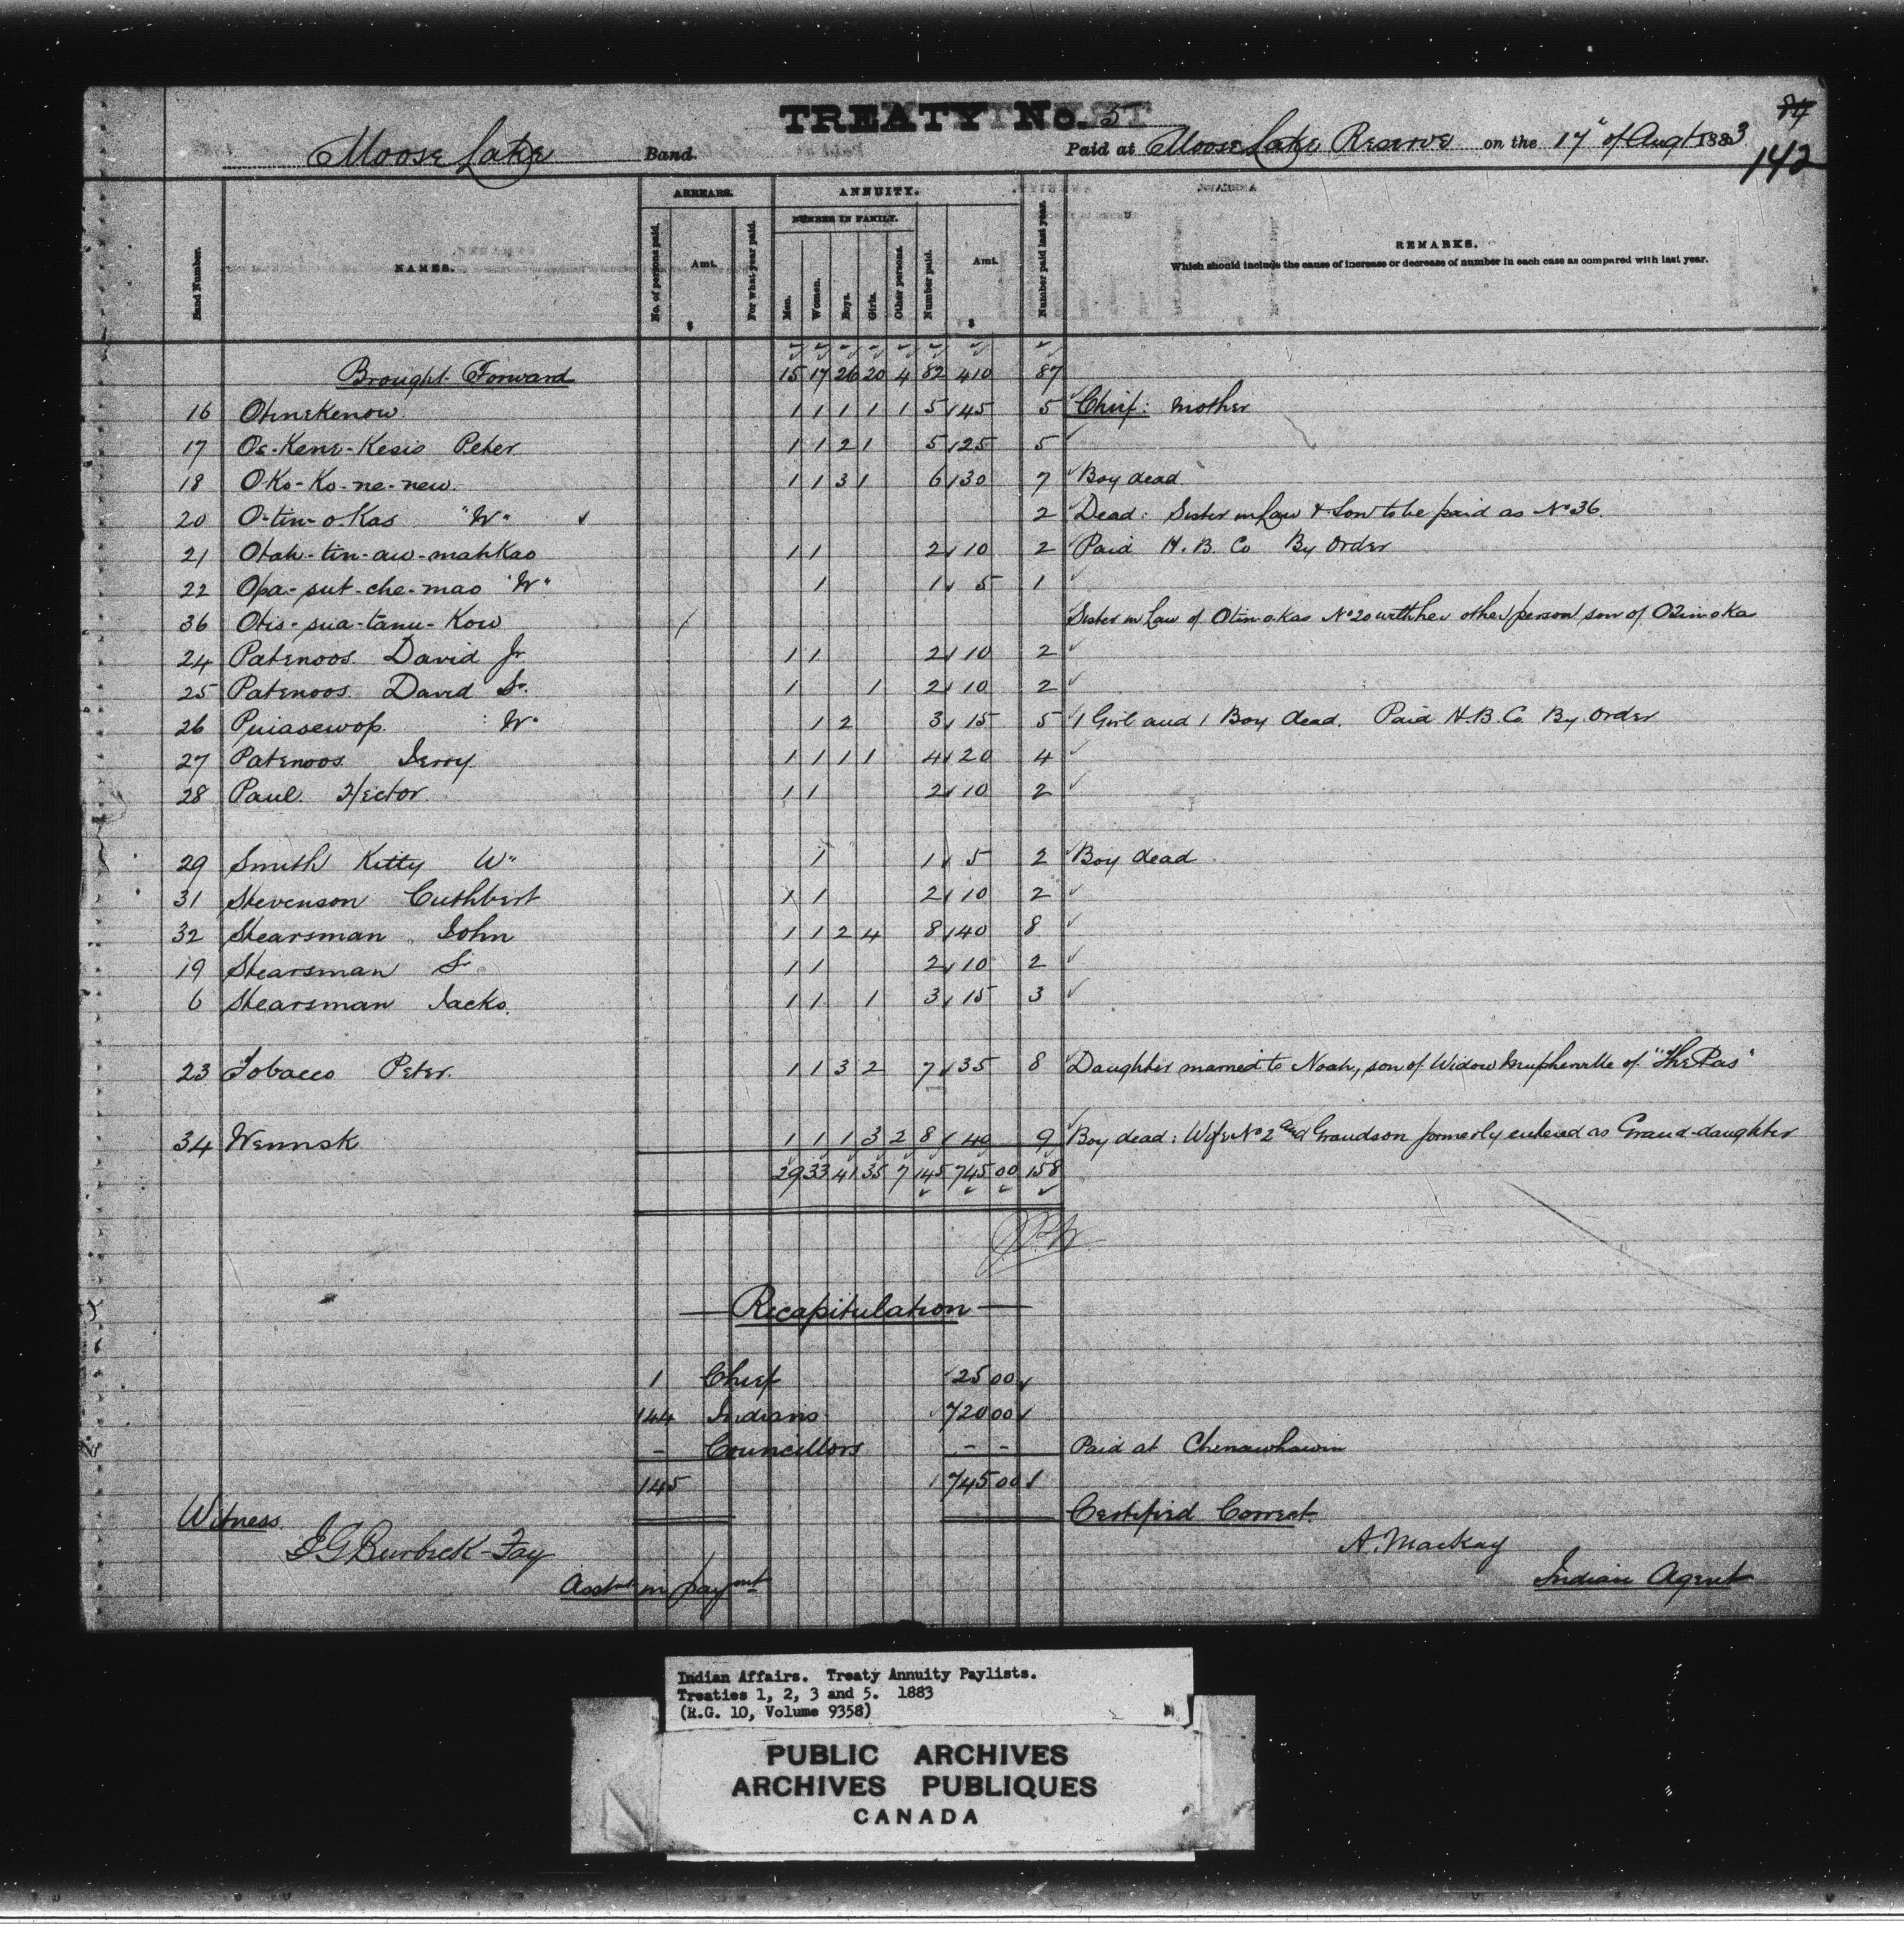 84
TREATY No. 5
Moose Lake Band. Paid at Moose Lake Reserve on the 17" of Augt 1883
142
ARREARS. ANNUITY.
NUMBER IN FAMILY.
Band Number. NAMES. No. of persons paid. Amt. $ For what year paid. Men. Women. Boys. Girls. Other persons. Number paid. Amt. $ Number paid last year. REMARKS.
Which should include the cause of increase or decrease of number in each case as compared with last year.
Brought Forward 15 17 26 20 4 82 410 87
16 Ohnekenow 1 1 1 1 1 5 45 5 Chief: Mother
17 Os-Kene-Kesio Peter 1 1 2 1 5 25 5
18 O-Ko-Ko-ne-new. 1 1 3 1 6 30 7 Boy dead
20 O-tin-o-Kas "W" 2 Dead: Sister in Law & Son to be paid as No 36.
21 Otah-tin-aw-mahkao 1 1 2 10 2 Paid H. B. Co By Order
22 Opa-sut-che-mao "W" 1 1 5 1
36 Otis-sua-tanu-Kow Sister in Law of Otin-o-Kas No 20 with her other person son of Otin-o-ka
24 Patenoos David Jr 1 1 2 10 2
25 Patenoos David Sr. 1 1 2 10 2
26 Puiasewop. W" 1 2 3 15 5 1 Girl and 1 Boy dead. Paid H.B. Co By Order
27 Patenoos Jerry 1 1 1 1 4 20 4
28 Paul. Hector. 1 1 2 10 2
29 Smith Kitty W" 1 1 5 2 Boy dead
31 Stevenson Cuthbert 1 1 2 10 2
32 Stearsman John 1 1 2 4 8 40 8
19 Stearsman Sr. 1 1 2 10 2
6 Stearsman Jacko. 1 1 1 3 15 3
23 Tobacco Peter. 1 1 3 2 7 35 8 Daughter married to Noah, son of Widow of "The Pas"
34 Wennsk 1 1 1 3 2 8 40 9 Boy dead: Wife No 2 and Grandson formerly entered as Grand-daughter
29 33 41 35 7 145 745 00 158
Recapitulation
1 Chief 25 00
144 Indians 720 00
- Councillors - - Paid at Chenawhawin
145 745 00
Witness. Certified Correct.
J G Burbeck-Fay A. MacKay
Asst in paymt Indian Agent
Indian Affairs. Treaty Annuity Paylists.
Treaties 1, 2, 3 and 5. 1883
(R.G. 10, Volume 9358)
PUBLIC ARCHIVES
ARCHIVES PUBLIQUES
CANADA